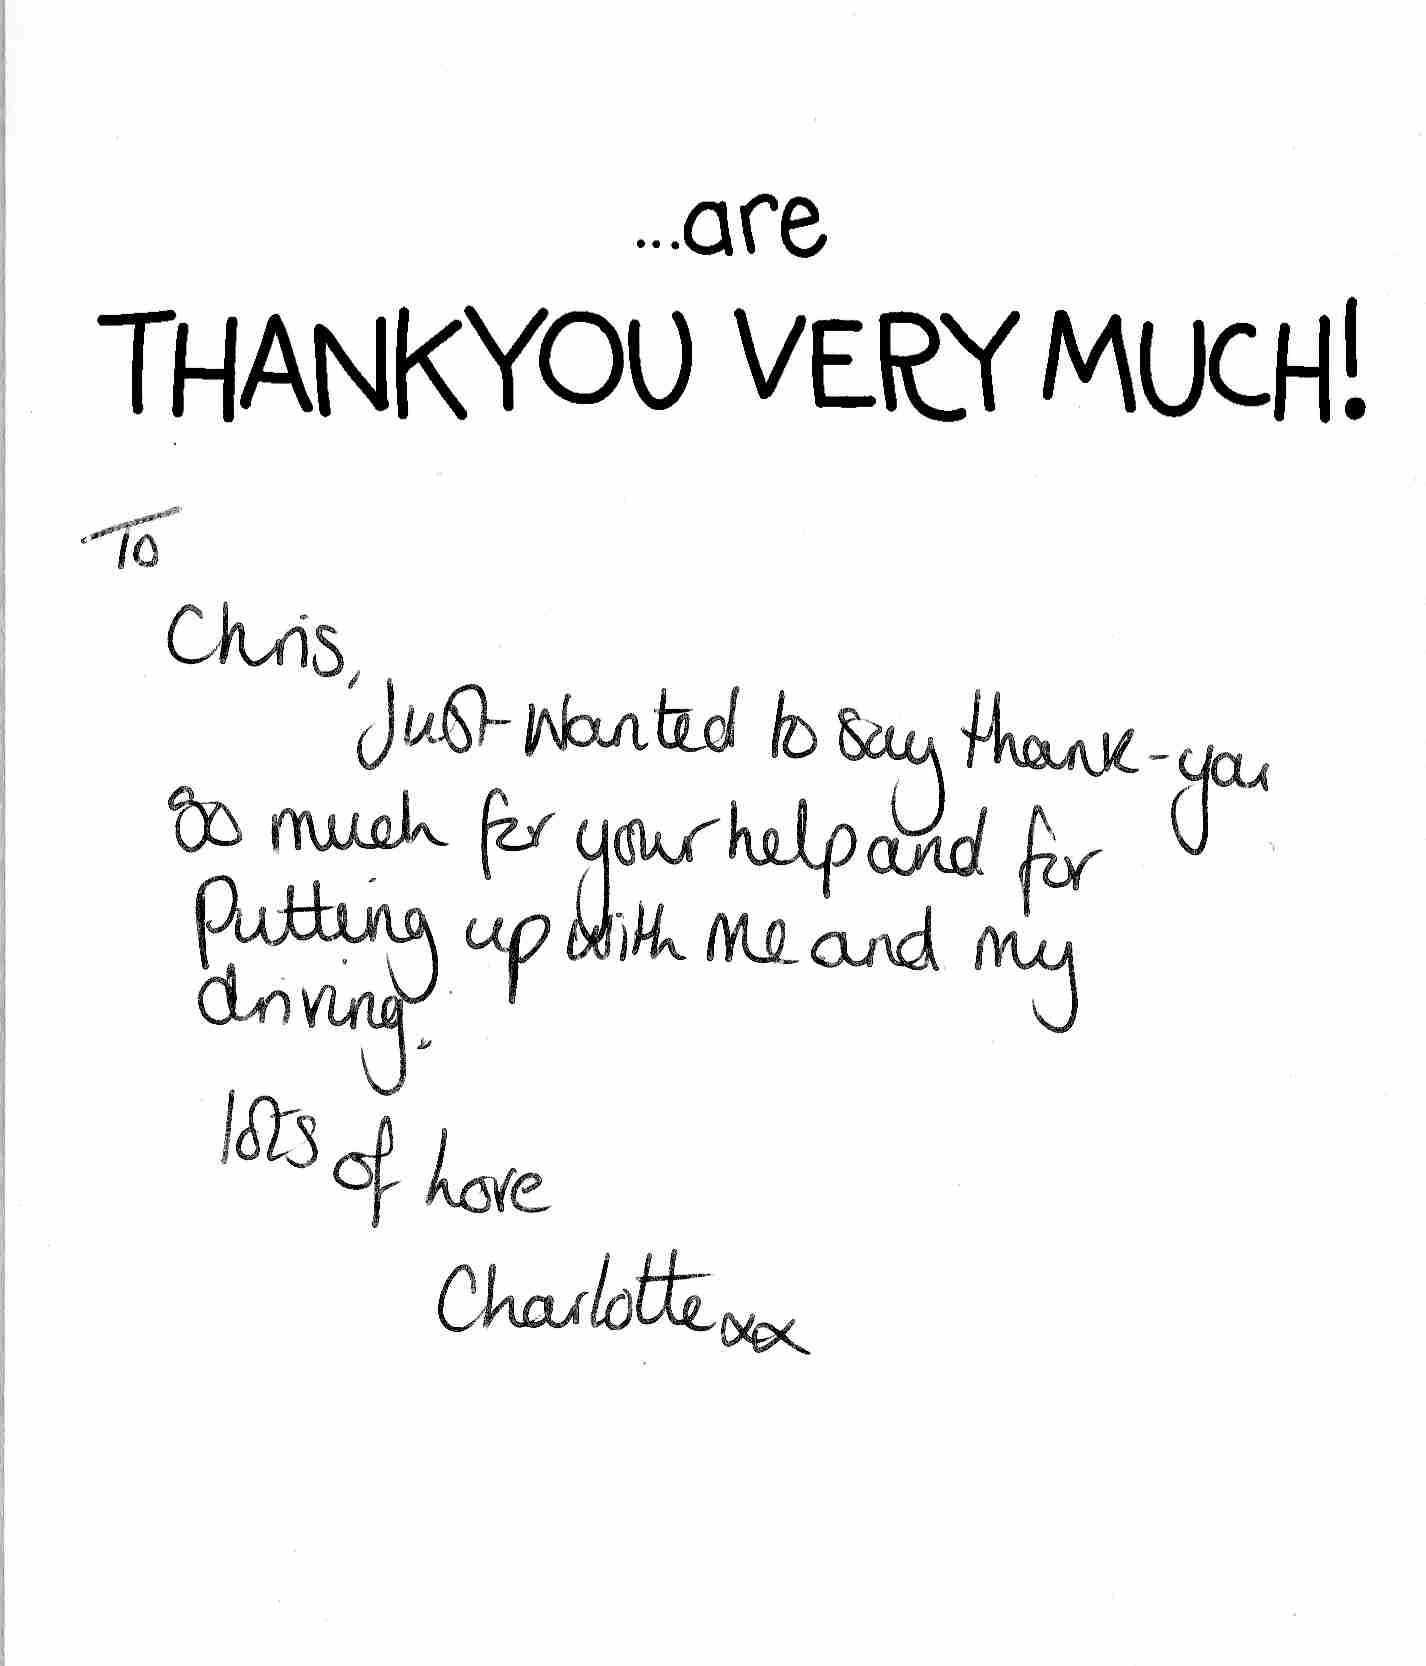 ...are
THANKYOU VERY MUCH!
To
Chris,
Just wanted to say thank-you
so much for your help and for
Putting up with me and my
driving.
lots of love
Charlotte xx